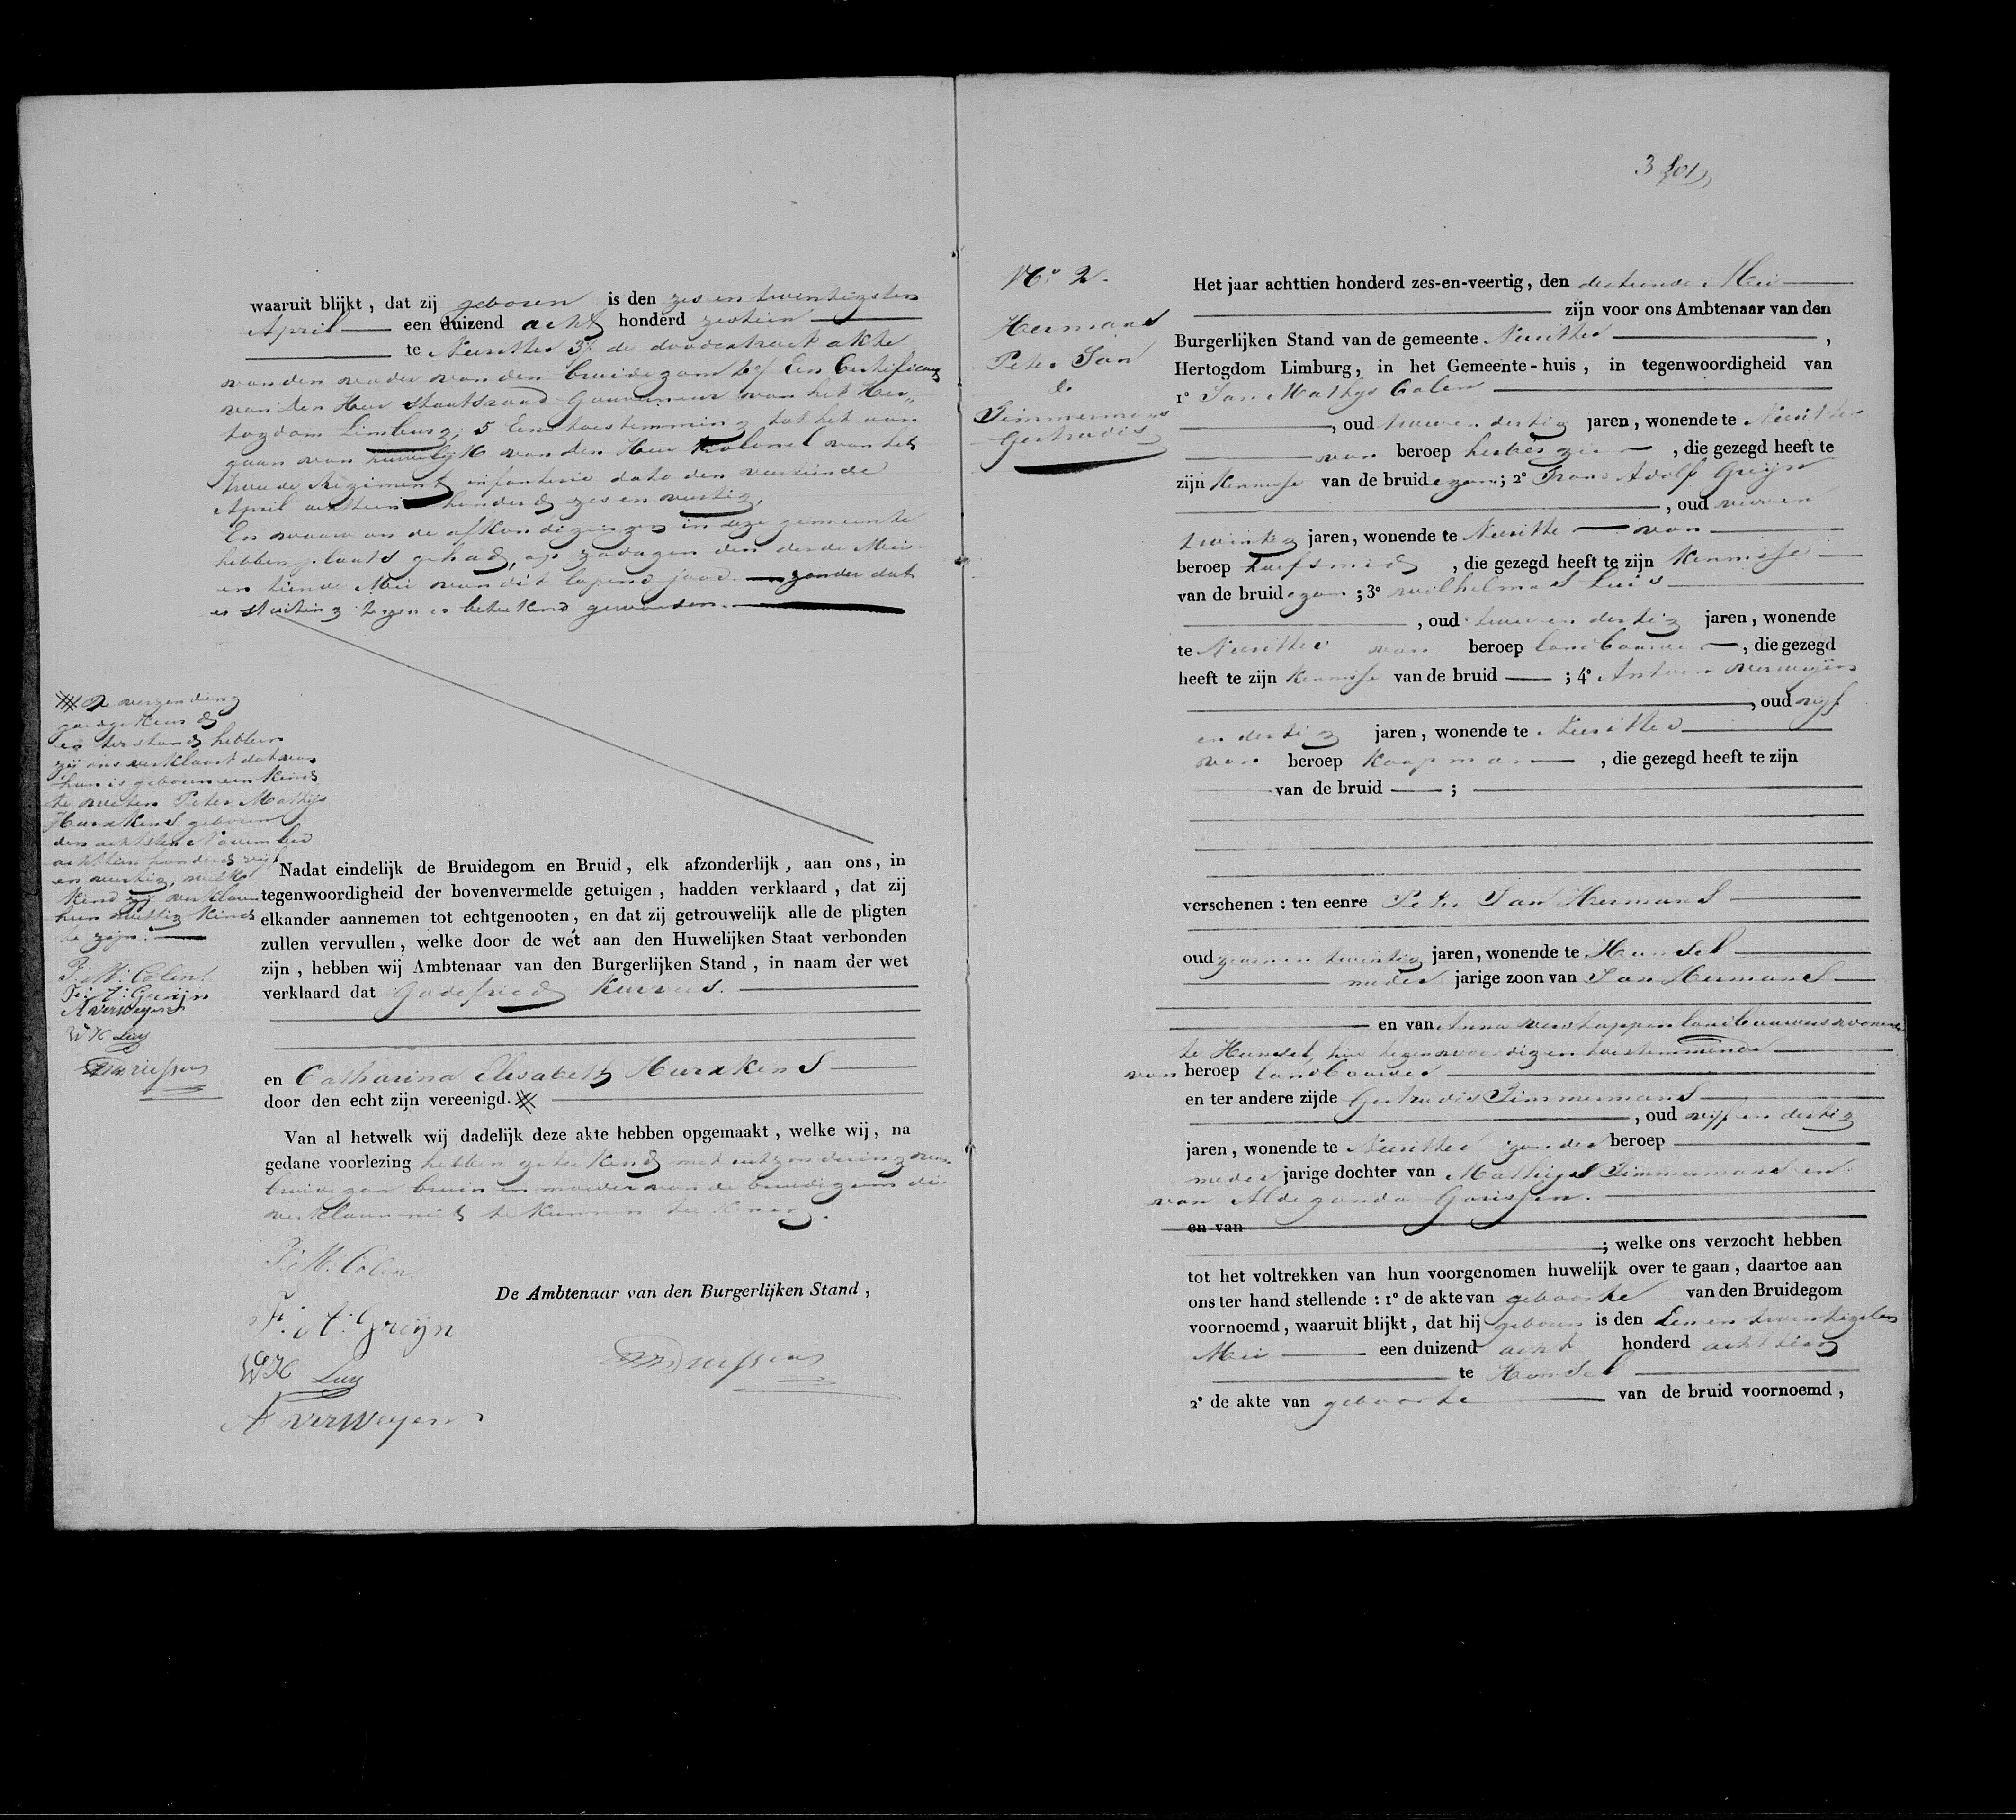 waaruit blijkt, dat zij geboren is den zes en twintigsten
April een duizend acht honderd zestien
te Neeritter 3/. de doodextract akte
van den vader van den bruidegom 4/ Een Certificaat
van den Heer Staatsraad Gouverneur van het Her„
togdom Limburg; 5 Eene toestemming tot het aan
gaan van huwelijk van den Heer Kolonel van het
tweede Regiment infanterie dato den veertiende
April achttien honderd zes en veertig,
En waar van de afkondigingen in deze gemeente
hebben plaats gehad, op zondagen den derde Mei
en tiende Mei van dit lopend jaar zonder dat
er stuiting tegen is betekend geworden.
De verzending
goedgekeurd
en terstond hebben
zij ons verklaart dat van
hun is geboren een kind
te weten Peter Mathijs
Hurxkens geboren
den achtsten November
achttien honderd vijf
en veertig, welke
kind zij verklaren
hun wettig kind
te zijn.
J: M: Colen
F: A: Greijn
A verweyens
WH Luy
Driessens
Nadat eindelijk de Bruidegom en Bruid, elk afzonderlijk, aan ons, in
tegenwoordigheid der bovenvermelde getuigen, hadden verklaard, dat zij
elkander aannemen tot echtgenooten, en dat zij getrouwelijk alle de pligten
zullen vervullen, welke door de wet aan den Huwelijken Staat verbonden
zijn, hebben wij Ambtenaar van den Burgerlijken Stand, in naam der wet
verklaard dat Godefried Kuvers.
en Catharina Elisabeth Hurxkens
door den echt zijn vereenigd.
Van al hetwelk wij dadelijk deze akte hebben opgemaakt, welke wij, na
gedane voorlezing hebben getekend met uitzondering van
bruidegom bruid en moeder van de bruidegom die
verklaren niet te kunnen tekenen.
J: M: Colen
De Ambtenaar van den Burgerlijken Stand,
F: A: Greijn
WH Luy
Driessens
A verweyens
3
No 2.
Hermans
Peter Jan
&
Timmermans
Gertrudis
Het jaar achttien honderd zes-en-veertig, den dertiende Mei
zijn voor ons Ambtenaar van den
Burgerlijken Stand van de gemeente Neeritter,
Hertogdom Limburg, in het Gemeente-huis, in tegenwoordigheid van
1° Jan Mathys Colen
, oud twee en dertig jaren, wonende te Neeritter
van beroep herbergier, die gezegd heeft te
zijn Kennisse van de bruidegom; 2° Frans Adolf Greijn
, oud vier en
twintig jaren, wonende te Neeritter van
beroep hoefsmid, die gezegd heeft te zijn Kennisse
van de bruidegom; 3° wilhelmus Luis
, oud twee en dertig jaren, wonende
te Neeritter van beroep landbouwer, die gezegd
heeft te zijn Kennisse van de bruid; 4° Antoon verweijens
, oud vijf
en dertig jaren, wonende te Neeritter
van beroep Koopman, die gezegd heeft te zijn
van de bruid;
verschenen: ten eenre Peter Jan Hermans
oud zeven en twintig jaren, wonende te Hunsel
meder jarige zoon van Jan Hermans
en van Anna verstappen landbouwers wonende
te Hunsel, hier tegenwoordig en toestemmende
van beroep landbouwer
en ter andere zijde Gertrudis Timmermans
, oud vijf en dertig
jaren, wonende te Neeritter zonder beroep
meder jarige dochter van Mathijs Timmermans en
van Aldegonda Gorissen.
en van
; welke ons verzocht hebben
tot het voltrekken van hun voorgenomen huwelijk over te gaan, daartoe aan
ons ter hand stellende: 1° de akte van geboorte van den Bruidegom
voornoemd, waaruit blijkt, dat hij geboren is den Eenen twintigsten
Mei een duizend acht honderd achttien
te Hunsel
2° de akte van geboorte van de bruid voornoemd,